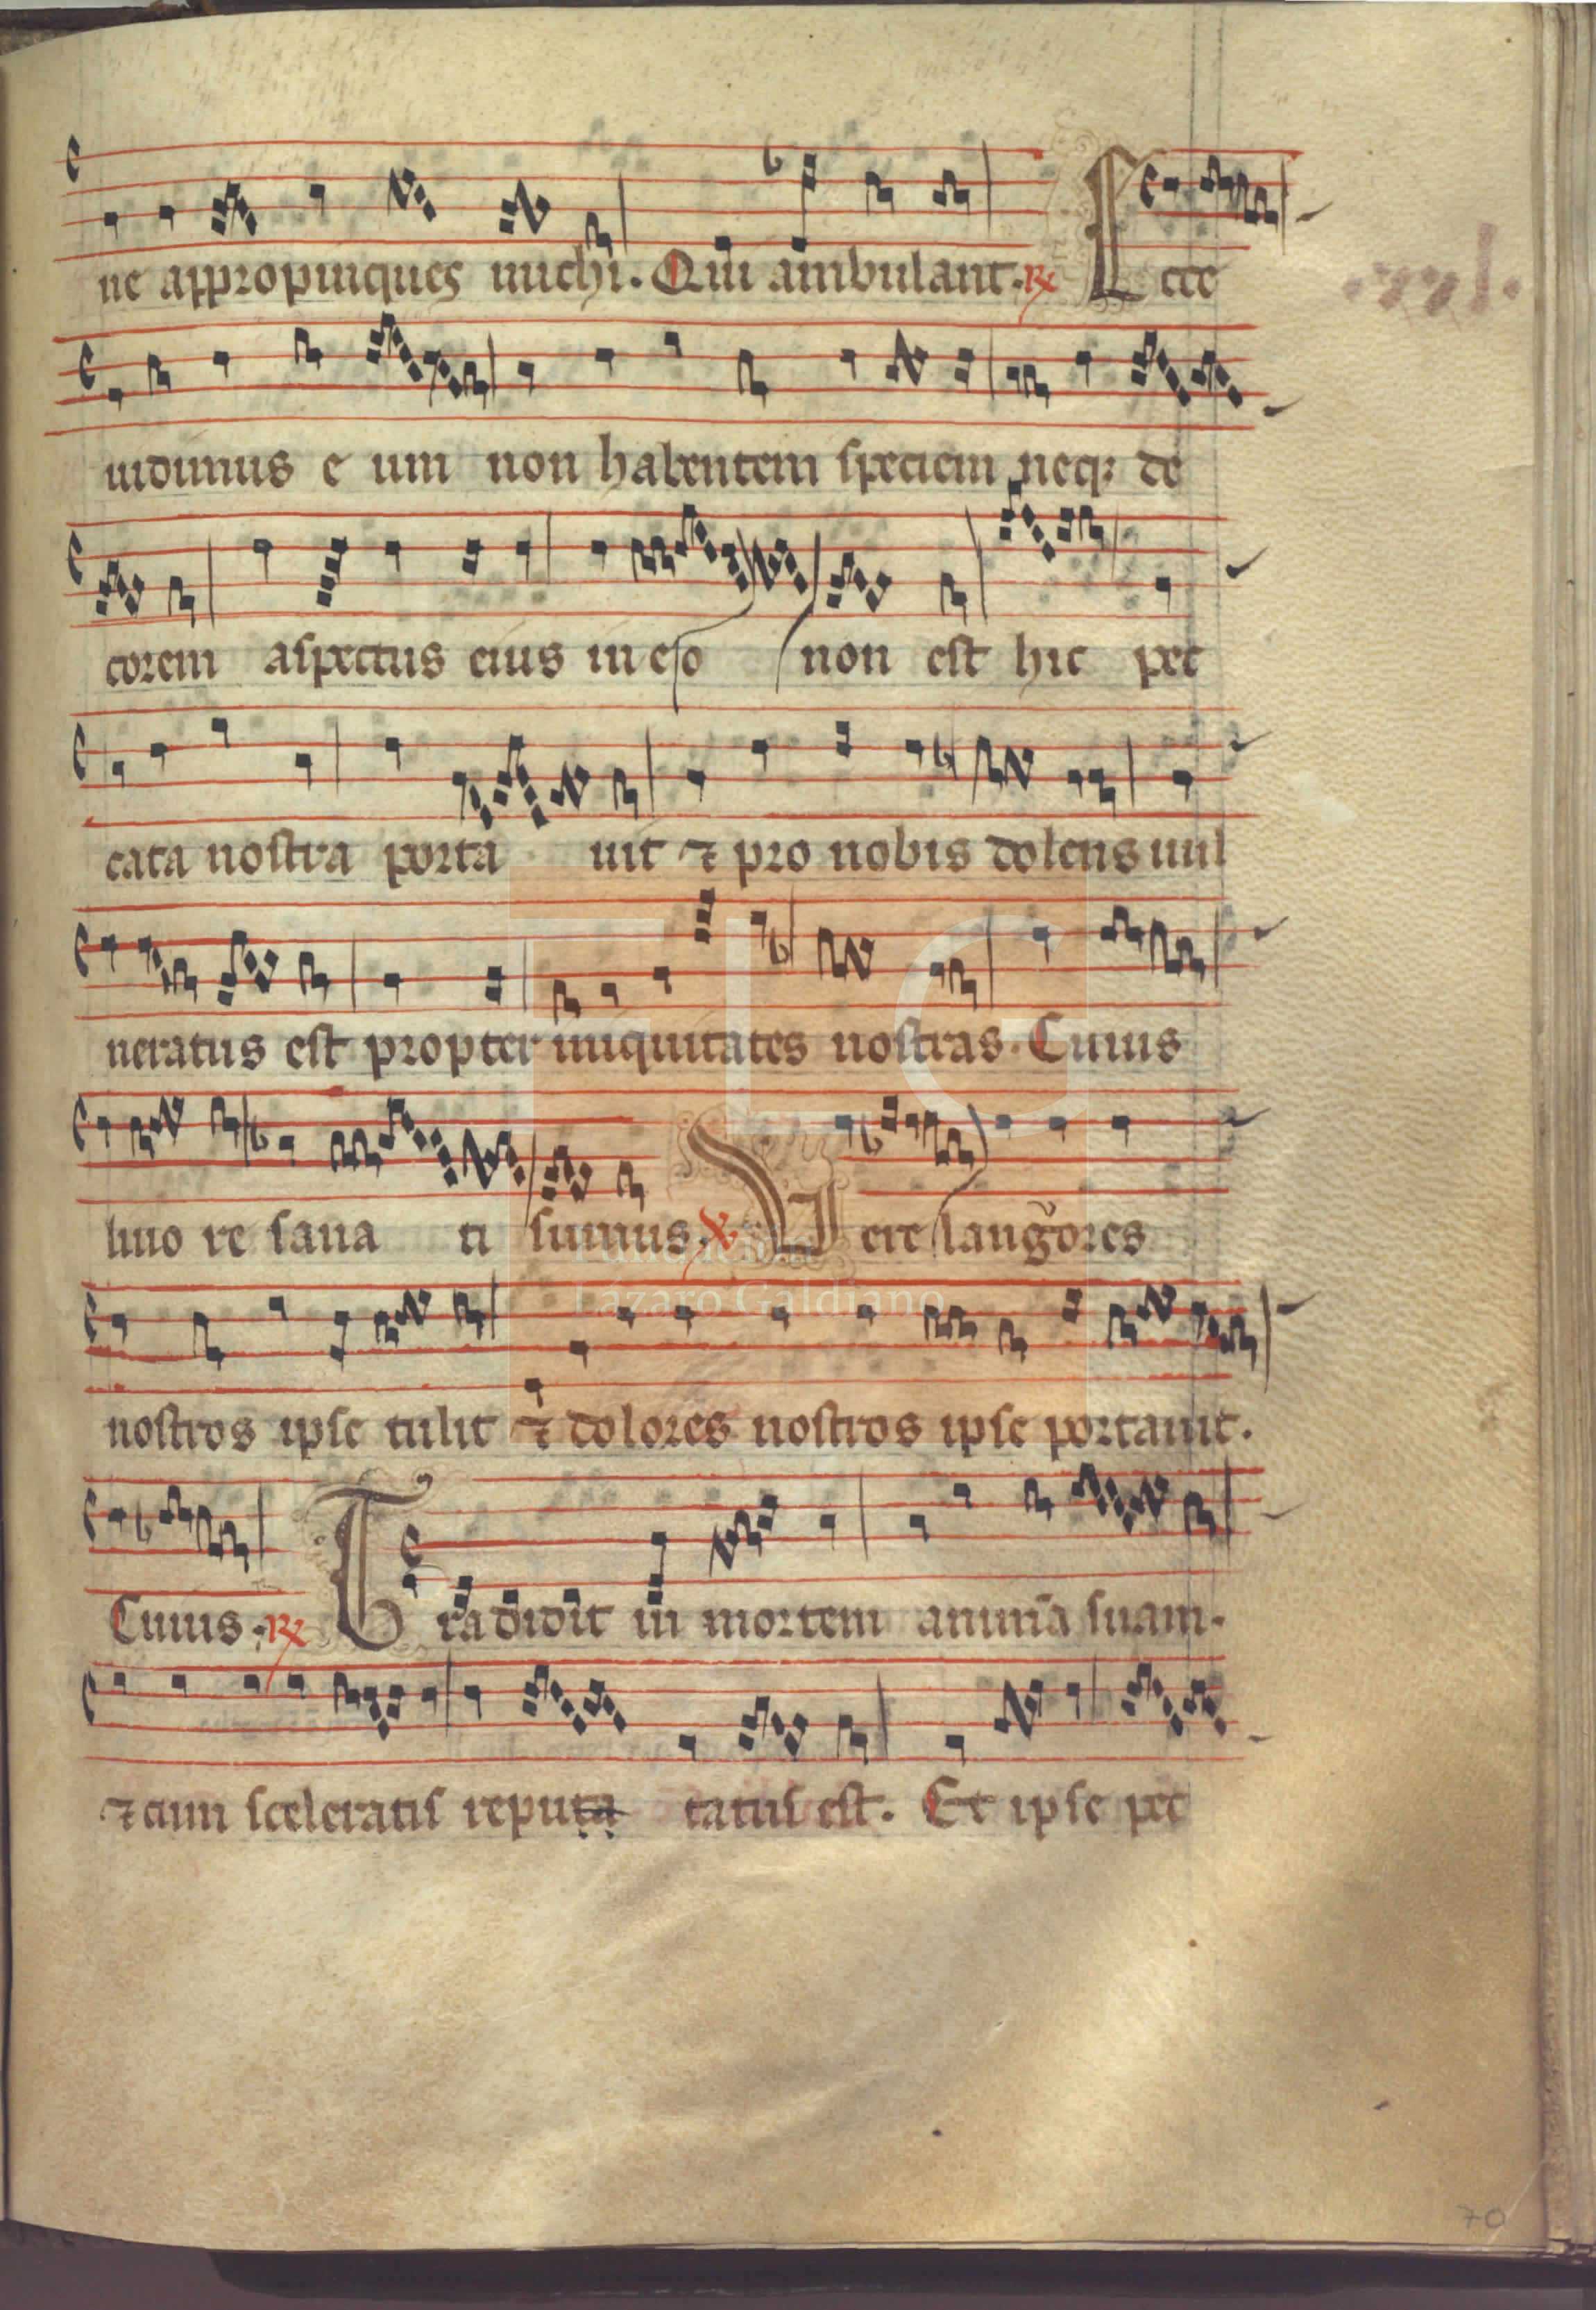 ne appropinques michi. Qui ambulant. ℟ Ecce
uidimus e um non habentem speciem neqꝫ de
corem aspectus eius in eo non est hic pec
cata nostra porta uit ⁊ pro nobis dolens uul
neratus est propter iniquitates nostras. Cuius
liuo re sana ti sumus. ℣ Uere langores
nostros ipse tulit ⁊ dolores nostros ipse portauit.
Cuius. ℟ Tradidit in mortem animā suam.
⁊ cum sceleratis reputa tatus est. Et ipse pec
FLG
Fundación
Lázaro Galdiano
70